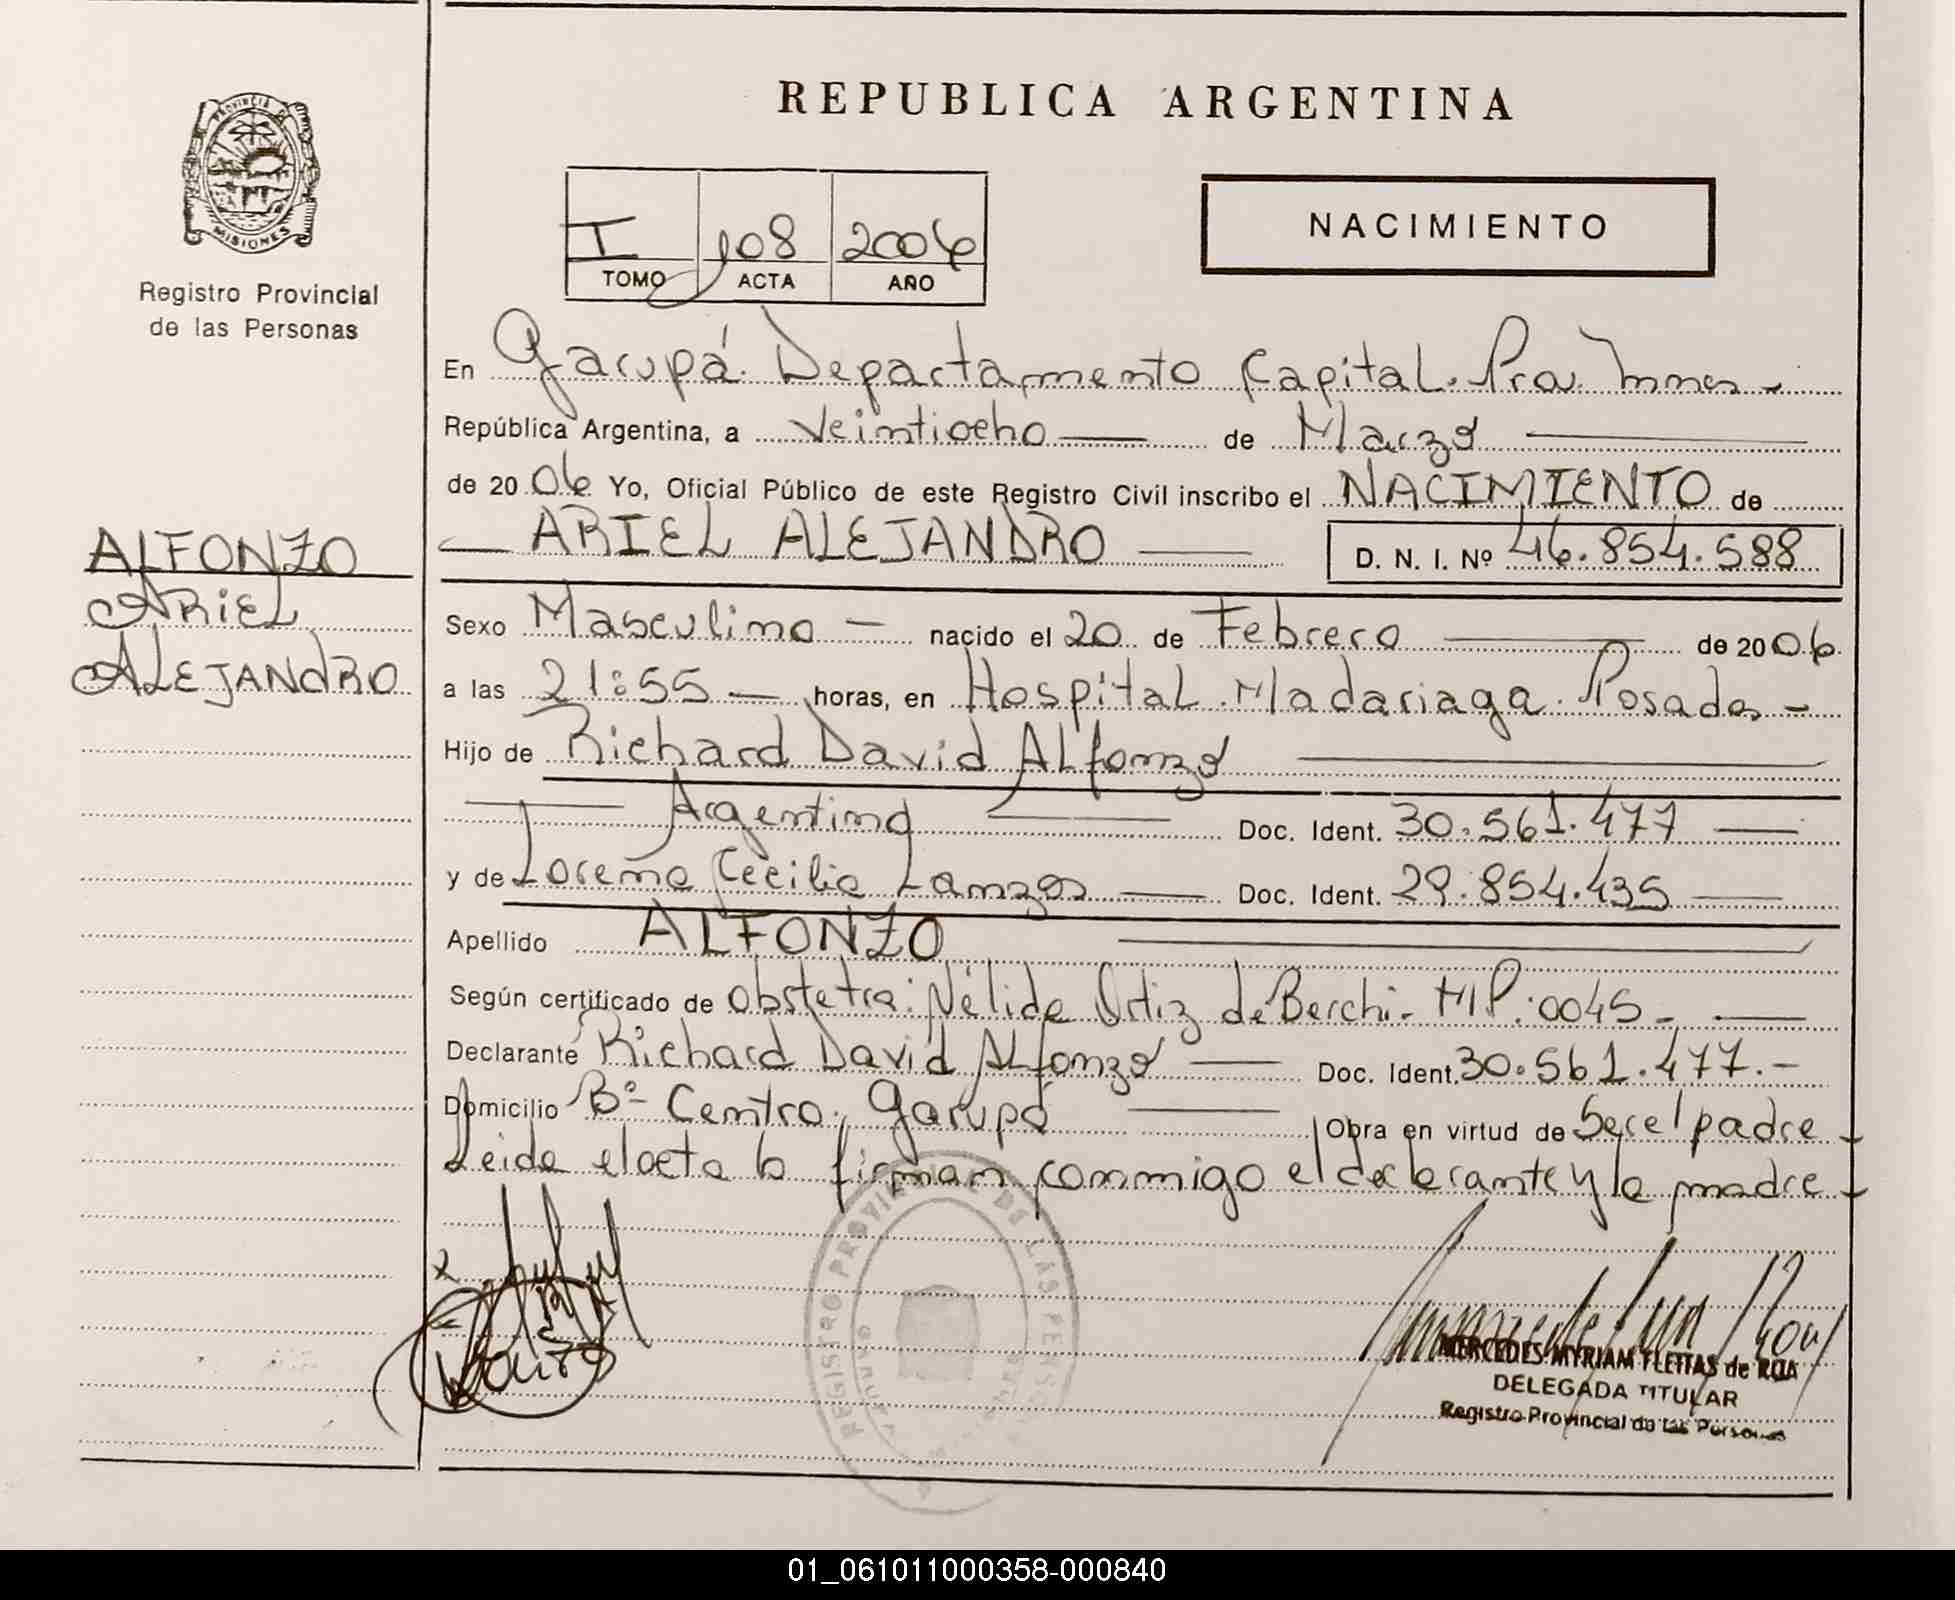 PROVINCIA DE
MISIONES
Registro Provincial
de las Personas
ALFONZO
ARIEL
ALEJANDRO
REPUBLICA ARGENTINA
I 108 2006
TOMO ACTA AÑO
NACIMIENTO
En Garupá. Departamento Capital. Pcia. Mnes -
República Argentina, a Veintiocho de Marzo
de 2006 Yo, Oficial Público de este Registro Civil inscribo el NACIMIENTO de
ARIEL ALEJANDRO D. N. I. Nº 46.854.588
Sexo Masculino - nacido el 20 de Febrero de 2006.
a las 21:55 - horas, en Hospital Madariaga. Posadas -
Hijo de Richard David Alfonzo
Argentino Doc. Ident. 30.561.477
y de Lorena Cecilia Lanzos Doc. Ident. 29.854.435
Apellido ALFONZO
Según certificado de obstetra: Nélida Ortiz de Berchi - MP: 0045 -
Declarante Richard David Alfonzo Doc. Ident. 30.561.477.-
Domicilio Bº Centro. Garupá Obra en virtud de Ser el padre -
Leida el acta la firman conmigo el declarante y la madre -
REGISTRO PROVINCIAL DE LAS PERSONAS
MERCEDES MYRIAM FLEITAS de ROA
DELEGADA TITULAR
Registro Provincial de las Personas
01_061011000358-000840